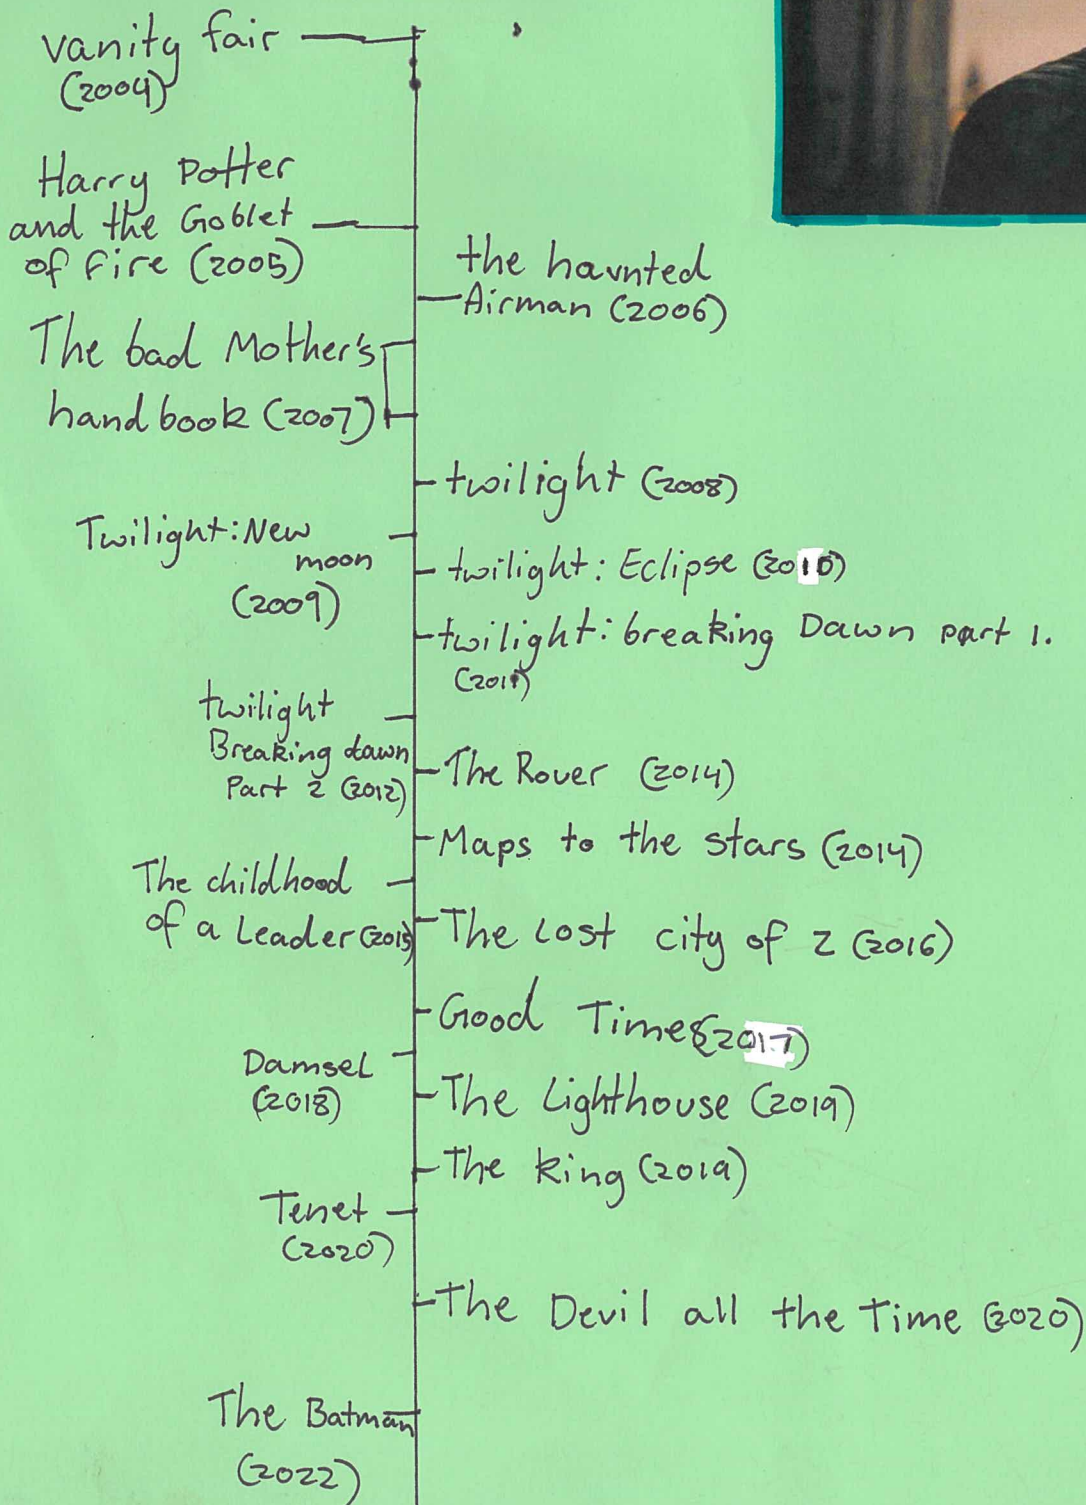 vanity fair
(2004)
Harry Potter
and the Goblet
of Fire (2005)
the haunted
Airman (2006)
The bad Mother's
handbook (2007)
twilight (2008)
Twilight: New
moon
(2009)
twilight: Eclipse (2010)
twilight: breaking Dawn part 1.
(2011)
twilight
Breaking dawn
Part 2 (2012)
The Rover (2014)
Maps to the stars (2014)
The childhood
of a Leader (2015)
The Lost city of Z (2016)
Good Times (2017)
Damsel
(2018)
The Lighthouse (2019)
The king (2019)
Tenet
(2020)
The Devil all the Time (2020)
The Batman
(2022)